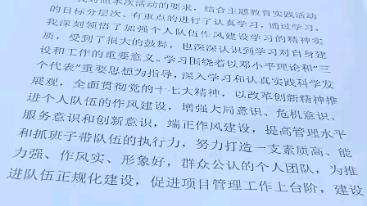 照本次活动的要求，结合主题教育实践活动
的目标分层次、有重点的进行了认真学习，通过学习，
我深刻领悟了加强个人队伍作风建设学习的精神实
质，受到了很大的鼓舞，也深深认识到学习对自身建
设和工作的重要意义。学习围绕着以邓小平理论和“三
个代表”重要思想为指导，深入学习和认真实践科学发
展观，全面贯彻党的十七大精神，以改革创新精神推
进个人队伍的作风建设，增强大局意识、危机意识、
服务意识和创新意识，端正作风建设，提高管理水平
和抓班子带队伍的执行力，努力打造一支素质高、能
力强、作风实、形象好，群众公认的个人团队，为推
进队伍正规化建设，促进项目管理工作上台阶，建设